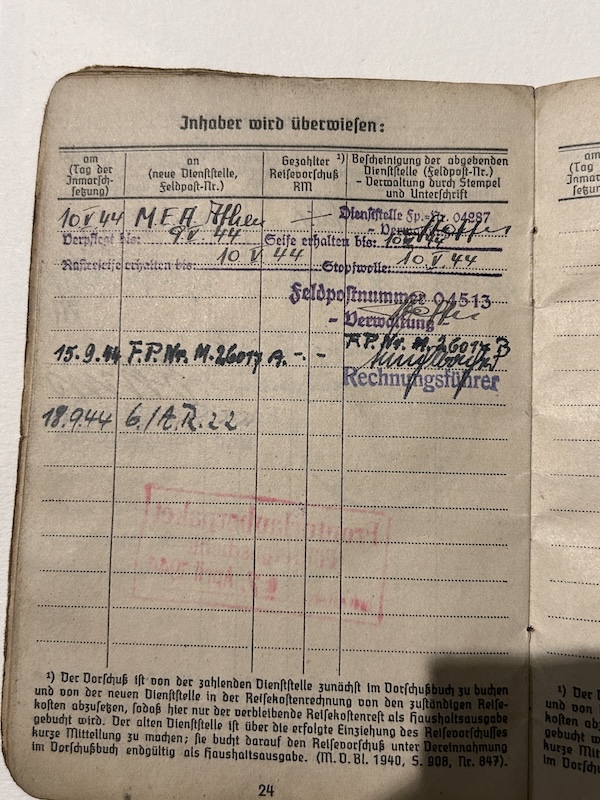 Inhaber wird überwiesen:
am
(Tag der
Inmarsch-
setzung)
an
(neue Dienststelle,
Feldpost-Nr.)
Gezahlter ¹)
Reisevorschuß
RM
Bescheinigung der abgebenden
Dienststelle (Feldpost-Nr.)
– Verwaltung durch Stempel
und Unterschrift
10 V 44 M.E.A. Athen — Dienststelle Fp.-Nr. 04287
Verpflegt bis: 9 V. 44 Seife erhalten bis: 10 V 44
Rasierseife erhalten bis: 10 V 44 Stopfwolle: 10 V. 44
Feldpostnummer 04513
- Verwaltung
15.9.44 F.P.Nr. M.26017 A. - . - F.P.Nr. M. 26017 B
Rechnungsführer
18.9.44 6./A.R. 22
¹) Der Vorschuß ist von der zahlenden Dienststelle zunächst im Vorschußbuch zu buchen
und von der neuen Dienststelle in der Reisekostenrechnung von den zuständigen Reise-
kosten abzusetzen, sodaß hier nur der verbleibende Reisekostenrest als Haushaltsausgabe
gebucht wird. Der alten Dienststelle ist über die erfolgte Einziehung des Reisevorschusses
kurze Mitteilung zu machen; sie bucht darauf den Reisevorschuß unter Vereinnahmung
im Vorschußbuch endgültig als Haushaltsausgabe. (M. D. Bl. 1940, S. 908, Nr. 847).
24
am
(Tag
Inmar
setzun
¹) Der
und von
kosten ab
gebucht w
kurze Mitt
im Vorschu